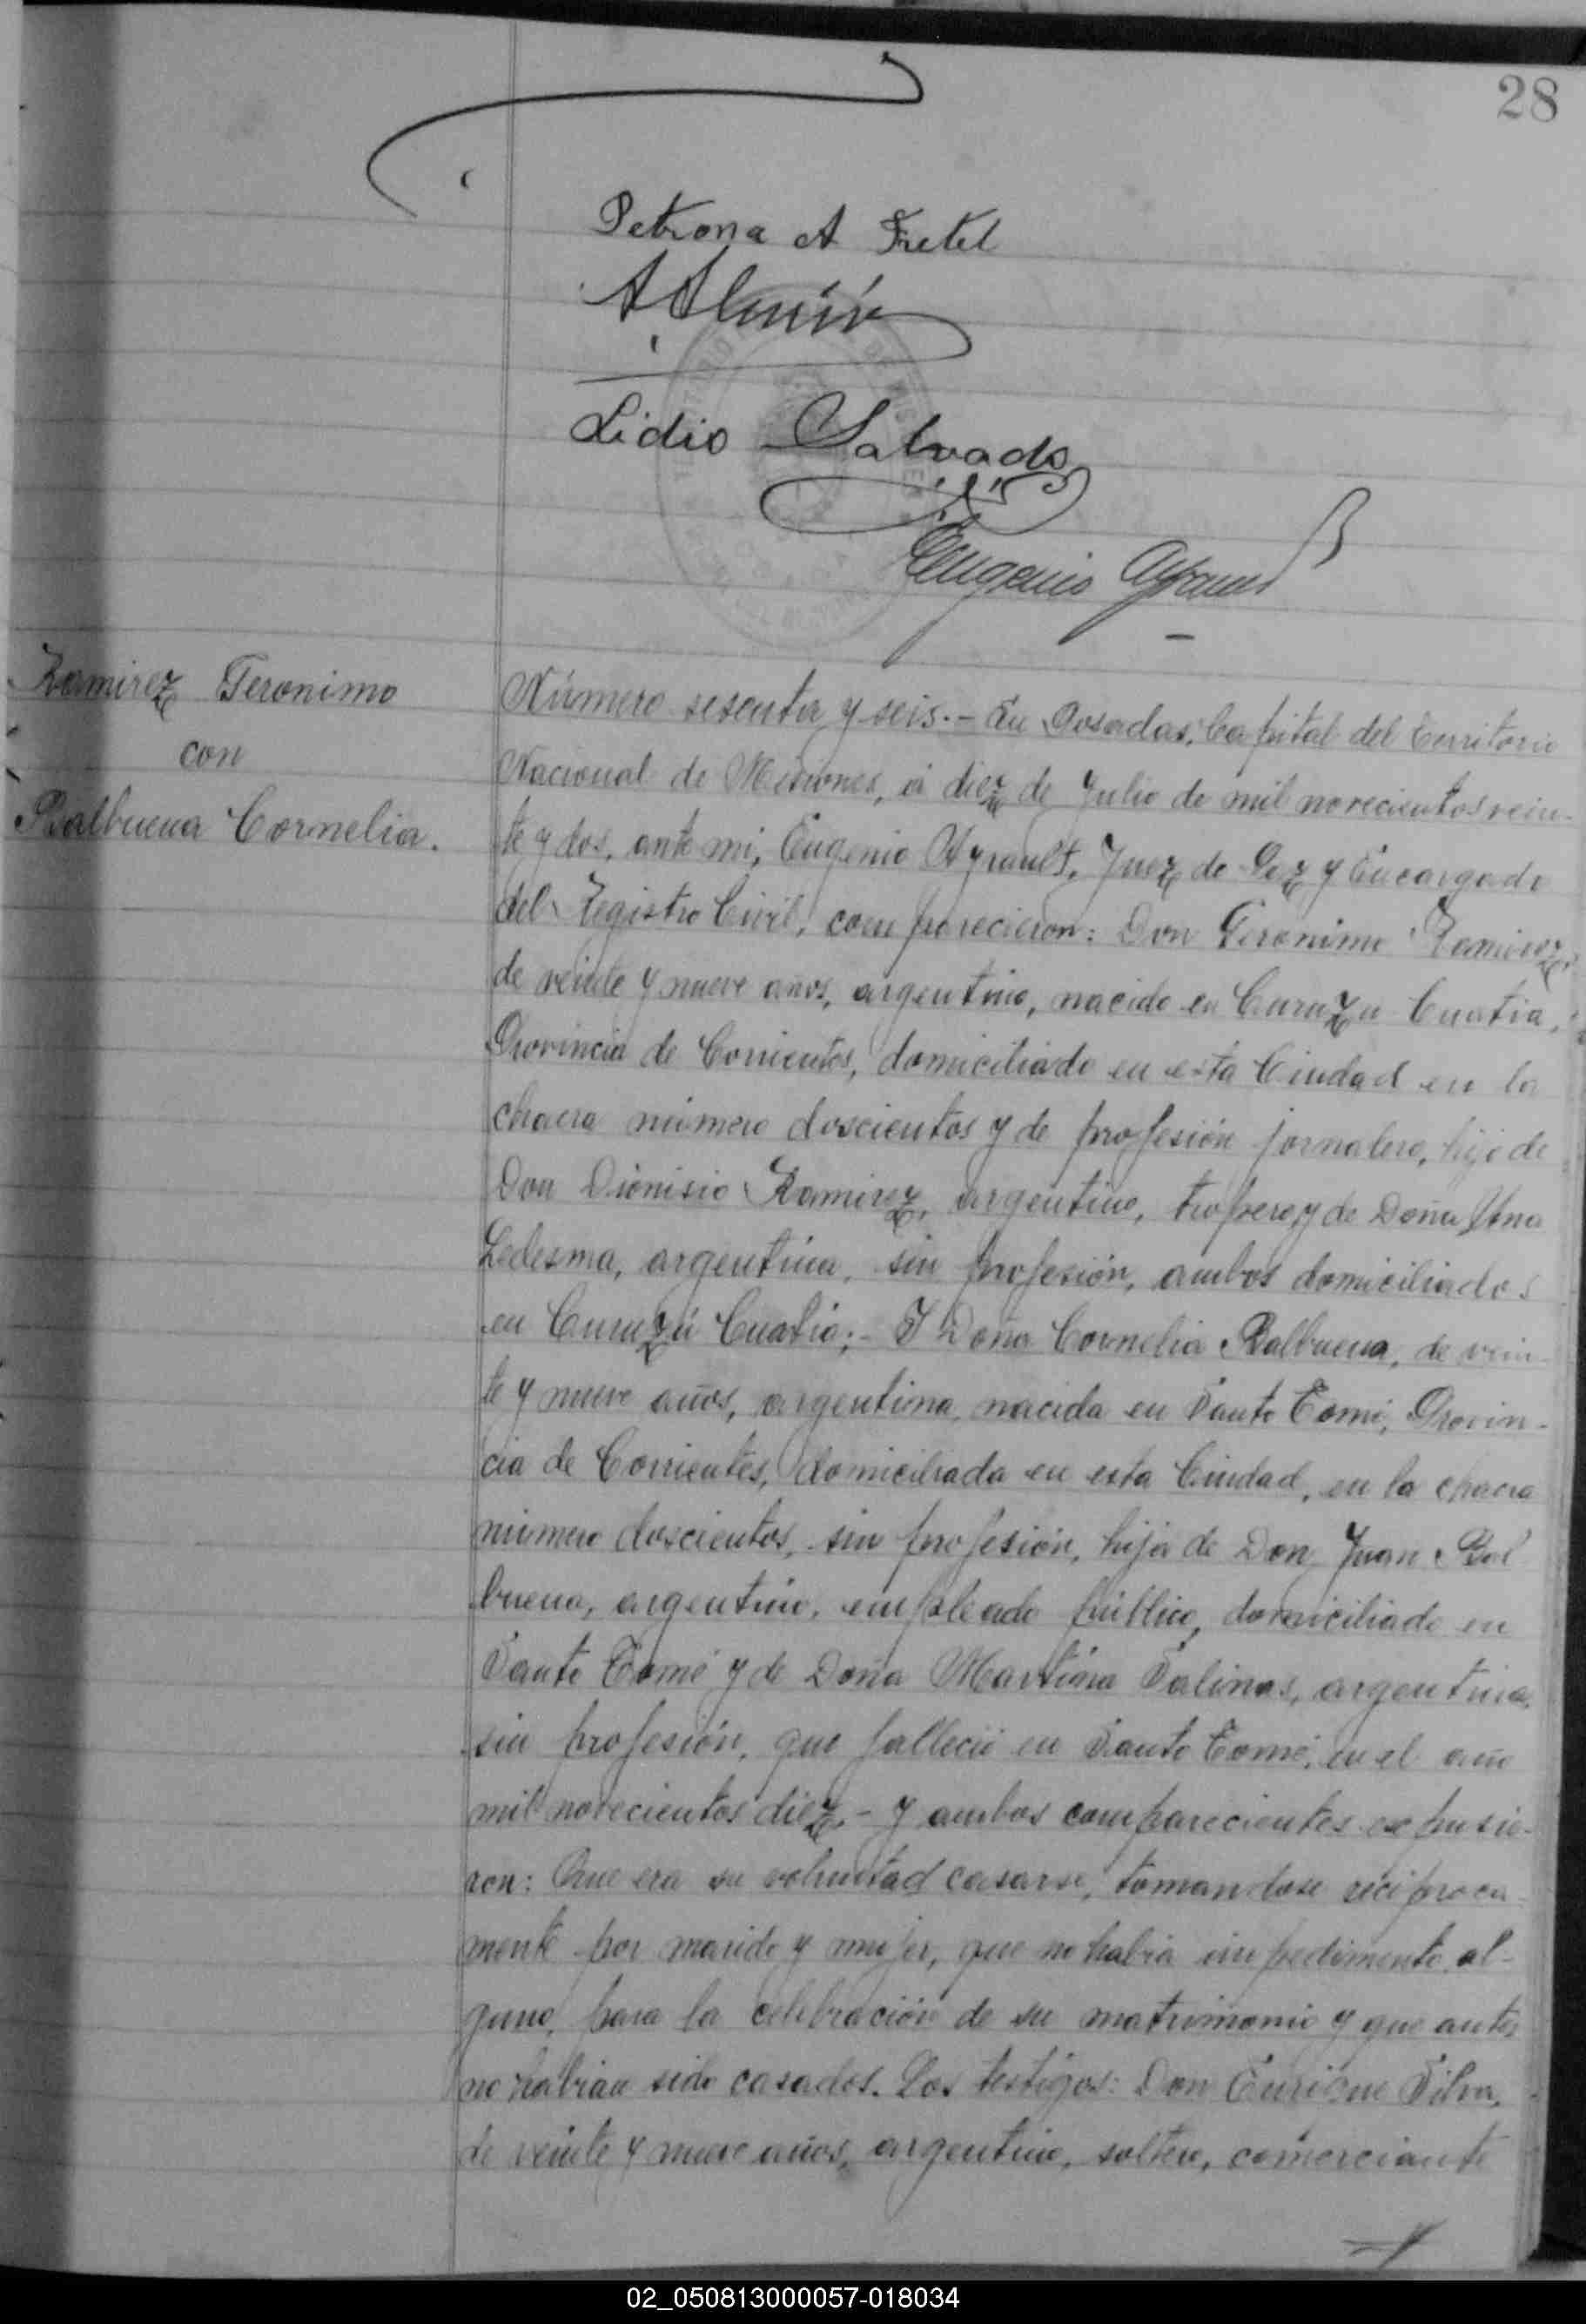 28
Petrona A Fretel
Lidio Salvado
Eugenio Ayrault
Ramirez Geronimo
con
Balbuena Cornelia.
Número sesenta y seis.- En Posadas, Capital del Territorio
Nacional de Misiones, á diez de Julio de mil novecientos vein-
te y dos, ante mi, Eugenio Ayrault, Juez de Paz y Encargado
del Registro Civil, comparecieron: Don Geronimo Ramirez,
de veinte y nueve años, argentino, nacido en Curuzu Cuatia,
Provincia de Corrientes, domiciliado en esta Ciudad en la
chacra número doscientos y de profesión jornalero, hijo de
Don Dionisio Ramirez, argentino, tropero, y de Doña Ana
Ledesma, argentina, sin profesión, ambos domiciliados
en Curuzú Cuatia;- Y Doña Cornelia Balbuena, de vein-
te y nueve años, argentina, nacida en Santo Tomé, Provin-
cia de Corrientes, domiciliada en esta Ciudad, en la chacra
número doscientos, sin profesión, hija de Don Juan Bal
buena, argentino, empleado público, domiciliado en
Santo Tomé y de Doña Martina Salinas, argentina,
sin profesión, que falleció en Santo Tomé, en el año
mil novecientos diez.- Y ambos comparecientes expusie-
ron: Que era su voluntad casarse, tomandose reciproca-
mente por marido y mujer, que no habia impedimento al-
guno, para la celebración de su matrimonio y que antes
no habian sido casados. Los testigos: Don Enrique Silva,
de veinte y nueve años, argentino, soltero, comerciante
02_050813000057-018034